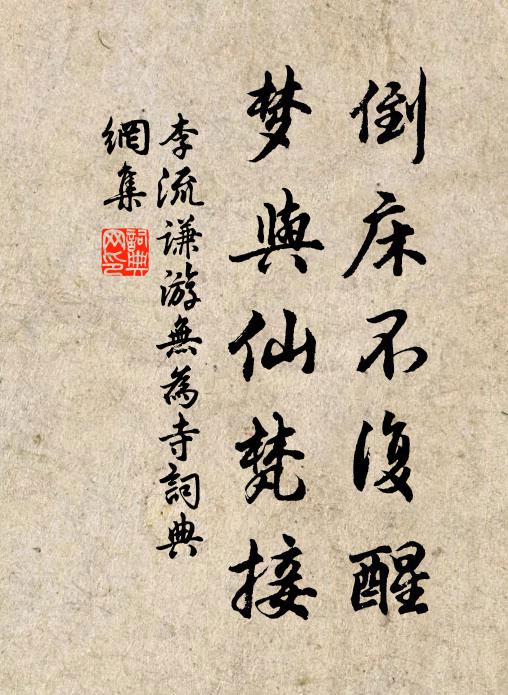 倒床不復醒
梦與仙梵接
李流谦游無為寺詞典
網集
詞典
网印